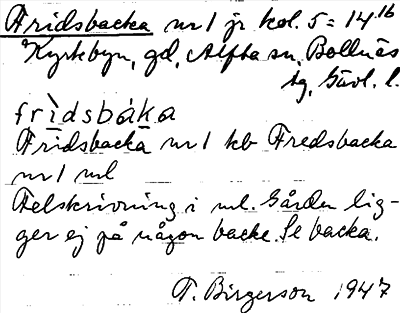 Fridsbacka nr 1 jr kol. 5 = 14.16
Kyrkbyn, gd, Alfta sn, Bollnäs
tg, Gävl. l.
frìdsbáka
Fridsbacka nr 1 kb Fredsbacka
nr 1 ml
Felskrivning i ml. Gården lig-
ger ej på någon backe. Se backa.
T. Birgerson 1947